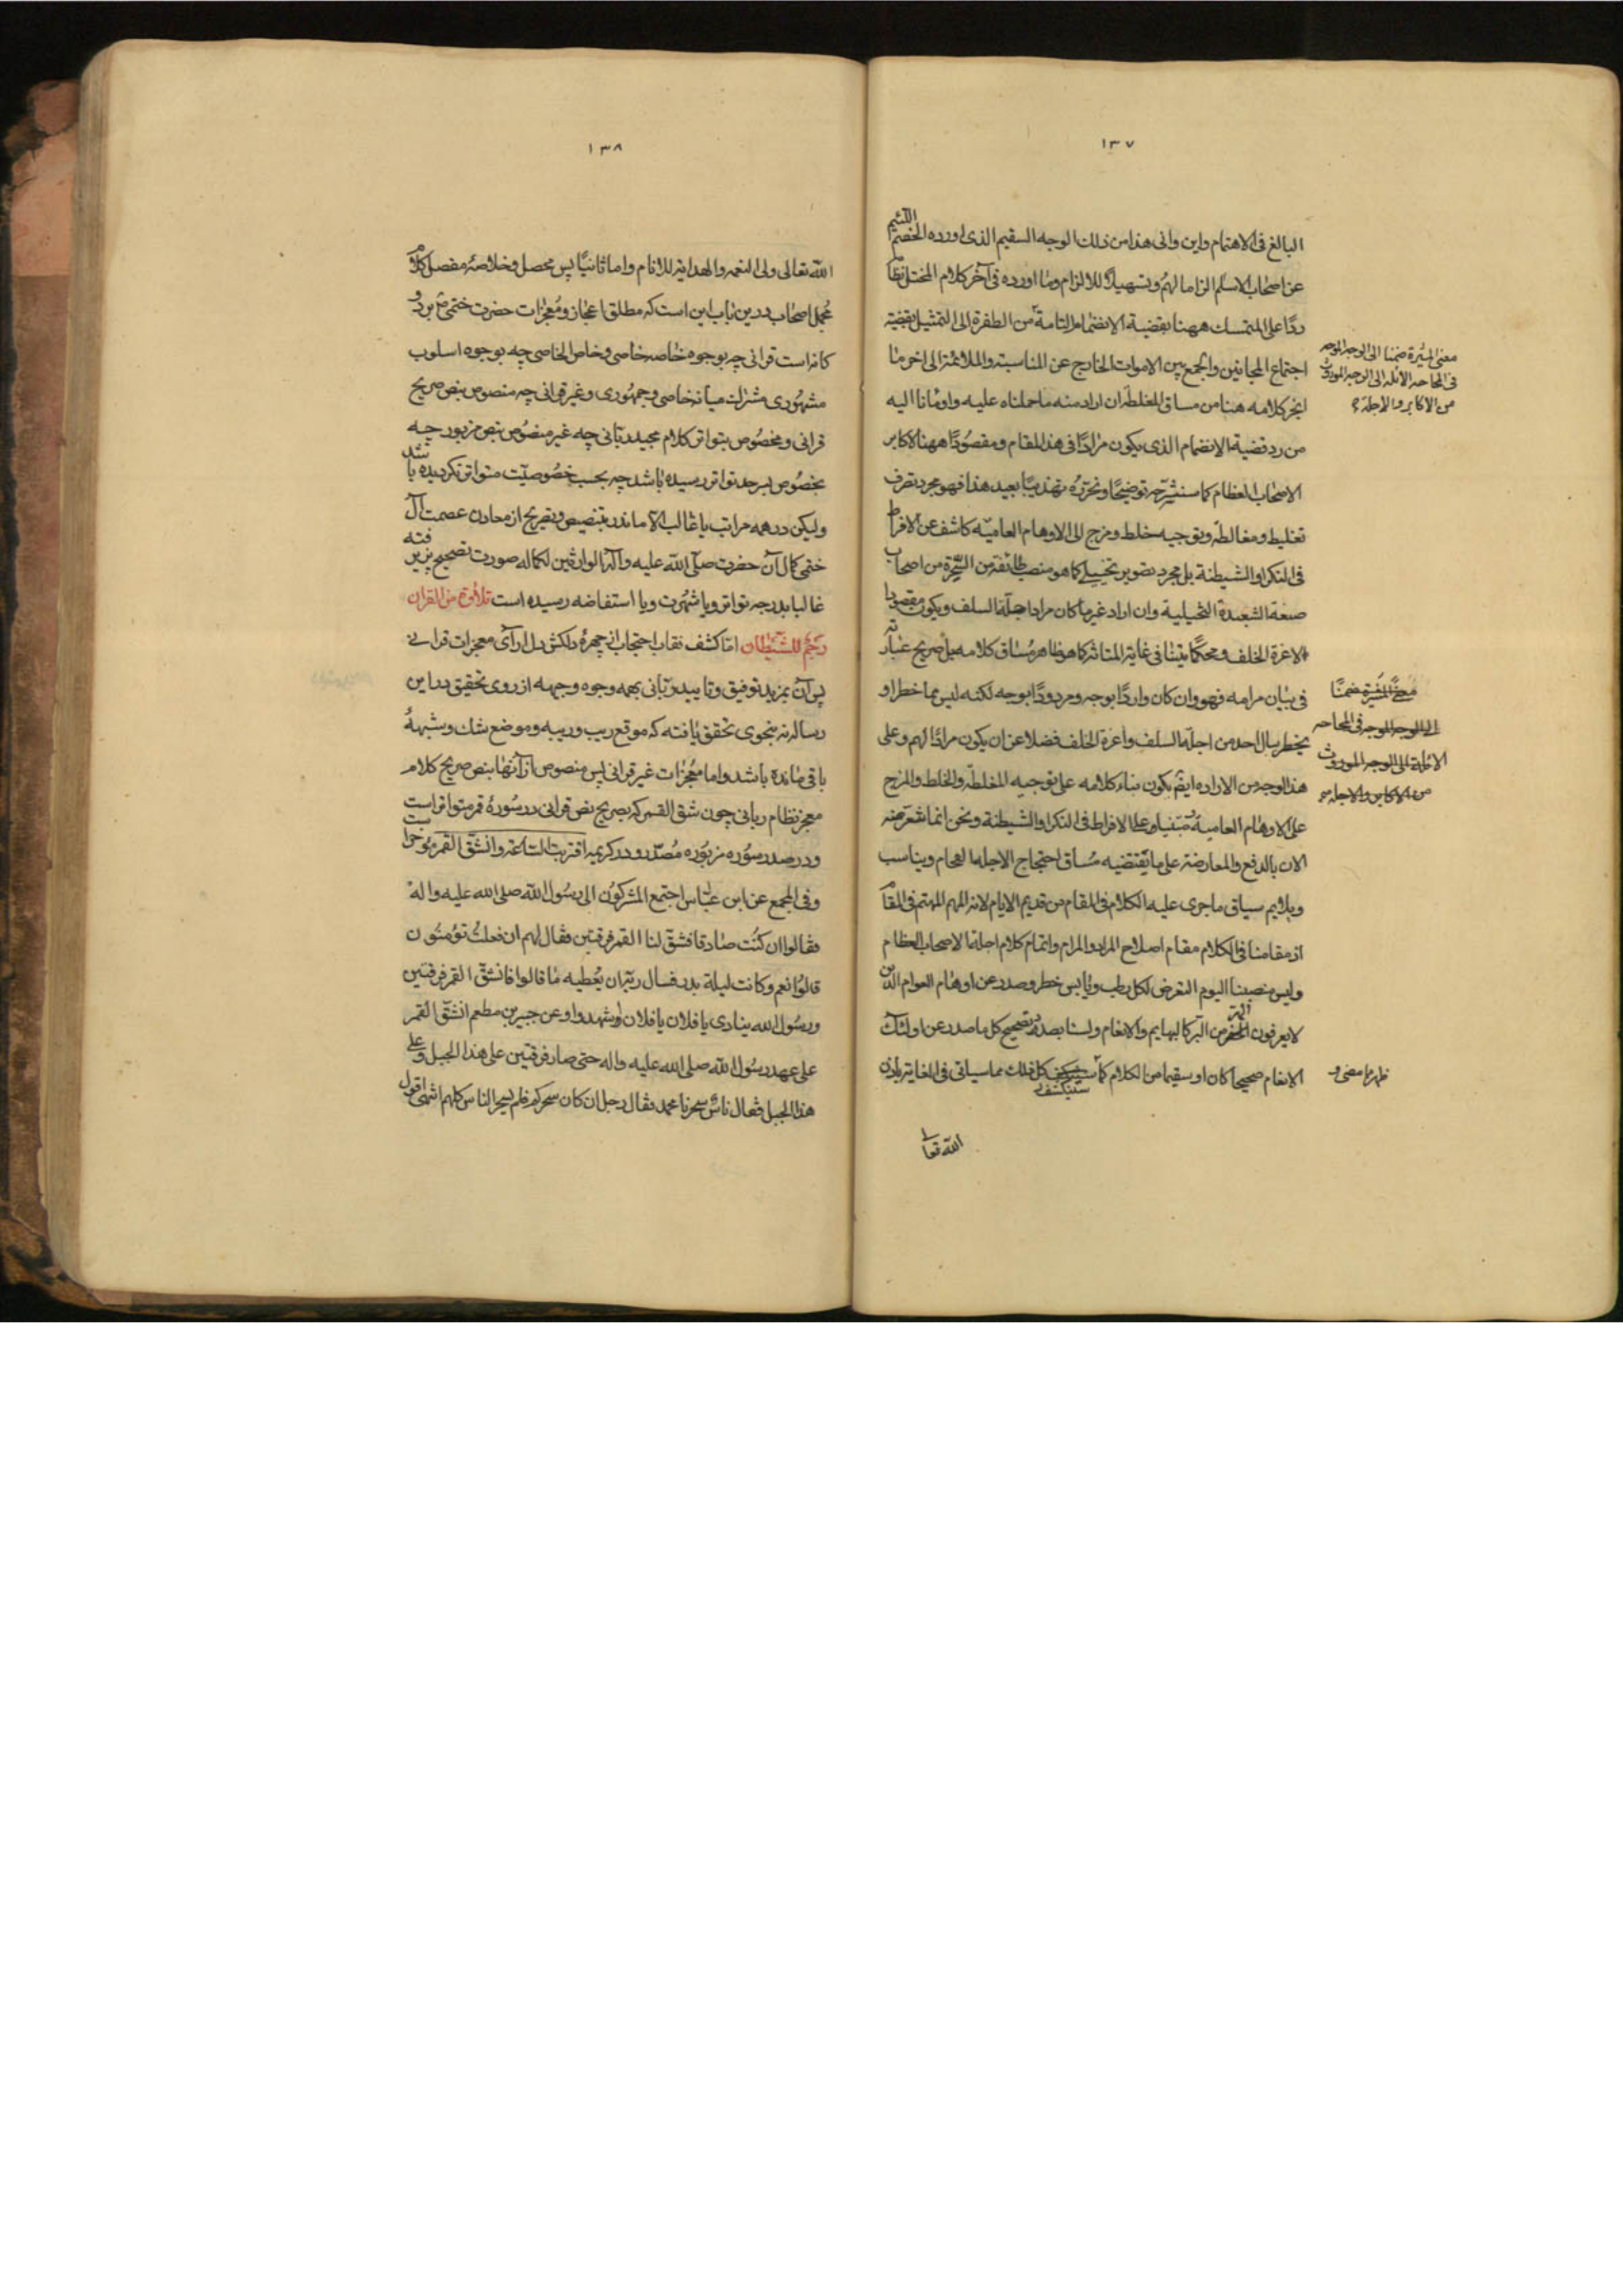 ١٣٧
البالغ فی الاهتمام واین وانی هذا من ذلك الوجه السقیم الذی اورده الخصم اللئیم
عن اصحاب الاسلم الزاما لهم وتسهیلا للالزام وما اورده فی آخر كلام المختل نظا
ردّا علی المتمسك ههنا بقضیة الانضمام التامة من الطفرة الی التمثیل بقضیة
اجتماع المجانین والجمع بین الاموات الخارج عن المناسبة والملائمة الی اخر ما
انجر كلامه هنا من مساق المغلطه ان اراد منه ما حملناه علیه واومأنا الیه
من رد قضیة الانضمام الذی یكون مرادًا فی هذا المقام ومقصودًا ههنا لاكابر
الاصحاب العظام كما سنشرّحه توضیحًا ونحرّره تهذیبًا بعید هذا فهو مجرد تصرف
تغلیط ومغالطه وتوجیه خلط ومزج الی الاوهام العامیّه كاشف عن الافراط
فی النكرا والشیطنة بل مجرد تصویر تخییلی كما هو منصب طائفة من السّحرة من اصحاب
صنعة الشعبدة التخیلیة وان اراد غیر ما كان مرادا جلّة السلف ویكون مقصودا
لاعزة الخلف ومحكمًا متینا فی غایة المتانة كما هو ظاهر مساق كلامه بل صریح عبارته
فی بیان مرامه فهو وان كان واردًا بوجه ومردودًا بوجه لكنه لیس مما خطر او
یخطر ببال احد من اجلّة السلف واعزة الخلف فضلا عن ان یكون مرادًا لهم وعلی
هذا الوجه من الاراده ایضًا یكون بناء كلامه علی توجیه المغلطه والخلط والمزج
علی الاوهام العامیة مبتنیا وعلی الافراط فی النكرا والشیطنة ونحن انما نتعرّضه
الان بالدفع والمعارضة علی ما یقتضیه مساق احتجاج الاجلة الفخام ویناسب
ویلایم سیاق ما جری علیه الكلام فی المقام من قدیم الایام لانه المهم المهتم فی المقام
اذ مقامنا فی الكلام مقام اصلاح المراد والمرام واتمام كلام اجلة الاصحاب العظام
ولیس منصبنا الیوم التعرض لكل رطب ویابس خطر وصدر عن اوهام العوام الذین
لا یعرفون الهر من البرّ كالبهایم والانعام ولسنا بصدد تصحیح كل ما صدر عن اولئك
الانعام صحیحا كان او سقیما من الكلام كما سینكشف كل ذلك مما سیاتی فی الغایة باذن
الله تعالی
معنی المیّزة ضمنا الی الوجه الموجه
فی المحاحه الائله الی الوجه الموروث
من الاكابر والاجلة
الی الوجه الموجه فی المحاحه
الائلة الی الوجه الموروث
من الاكابر والاجله
ظهرا مضی و
١٣٨
الله تعالی ولی النعمه والهدایة للانام واما ثانیًا پس محصل وخلاصهٔ مفصل كلام
مجمل اصحاب درین باب این است كه مطلق اعجاز ومعجزات حضرت ختمی مر بر دو
كانه است قرانی چه بوجوه خاصهٔ خاصی وخاص الخاصی چه بوجوه اسلوب
مشهوری منزلت میانه خاصی وجمهوری وغیر قرانی چه منصوص بنص صریح
قرانی ومخصوص بتواتر كلام مجید ربانی چه غیر منصوص بنص مزبور چه
بخصوص بسرحد تواتر رسیده باشد چه بحسب خصوصیّت متواتر نكردیده باشد
ولیكن در همه مراتب یا غالب الا ما ندر بتنصیص وتصریح از معادن عصمت آل
ختمی كمال آن حضرت صلّی الله علیه وآله الوارثین لكماله صورت تصحیح پزیرفته
غالبا بدرجه تواتر ویا شهرت ویا استفاضه رسیده است تلاوة من القران
رجم للشیطان امّا كشف نقاب احتجاب از چهرهٔ دلكش دل ارآی معجزات قرانی
پس آن بمزید توفیق وتایید ربّانی بهمه وجوه وجیهه از روی تحقیق دراین
رساله نه بنحوی تحقق یافته كه موقع ریب وریبه وموضع شك وشبههٔ
باقی مانده باشد واما معجزات غیر قرانی پس منصوص از آنها بنص صریح كلام
معجز نظام ربانی چون شق القمر كه بصریح نص قرانی در سورهٔ قمر متواتر است
ودر صدر سوره مزبوره مصدّر ودر كریمهٔ اقتربت السّاعة وانشقّ القمر
وفی المجمع عن ابن عبّاس اجتمع المشركون الی رسول الله صلی الله علیه واله
فقالوا ان كنت صادقا فشقّ لنا القمر فرقتین فقال لهم ان فعلت تؤمنون
قالوا نعم وكانت لیلة بدر فسال ربّه ان یعطیه ما قالوا فانشقّ القمر فرقتین
ورسول الله ینادی یا فلان یا فلان اشهدوا وعن جبیر بن مطعم انشقّ القمر
علی عهد رسول الله صلی الله علیه واله حتی صار فرقتین علی هذا الجبل وعلی
هذا الجبل فقال ناسٌ سحرنا محمد فقال رجل ان كان سحركم فلم یسحر الناس كلهم انتهی اقول